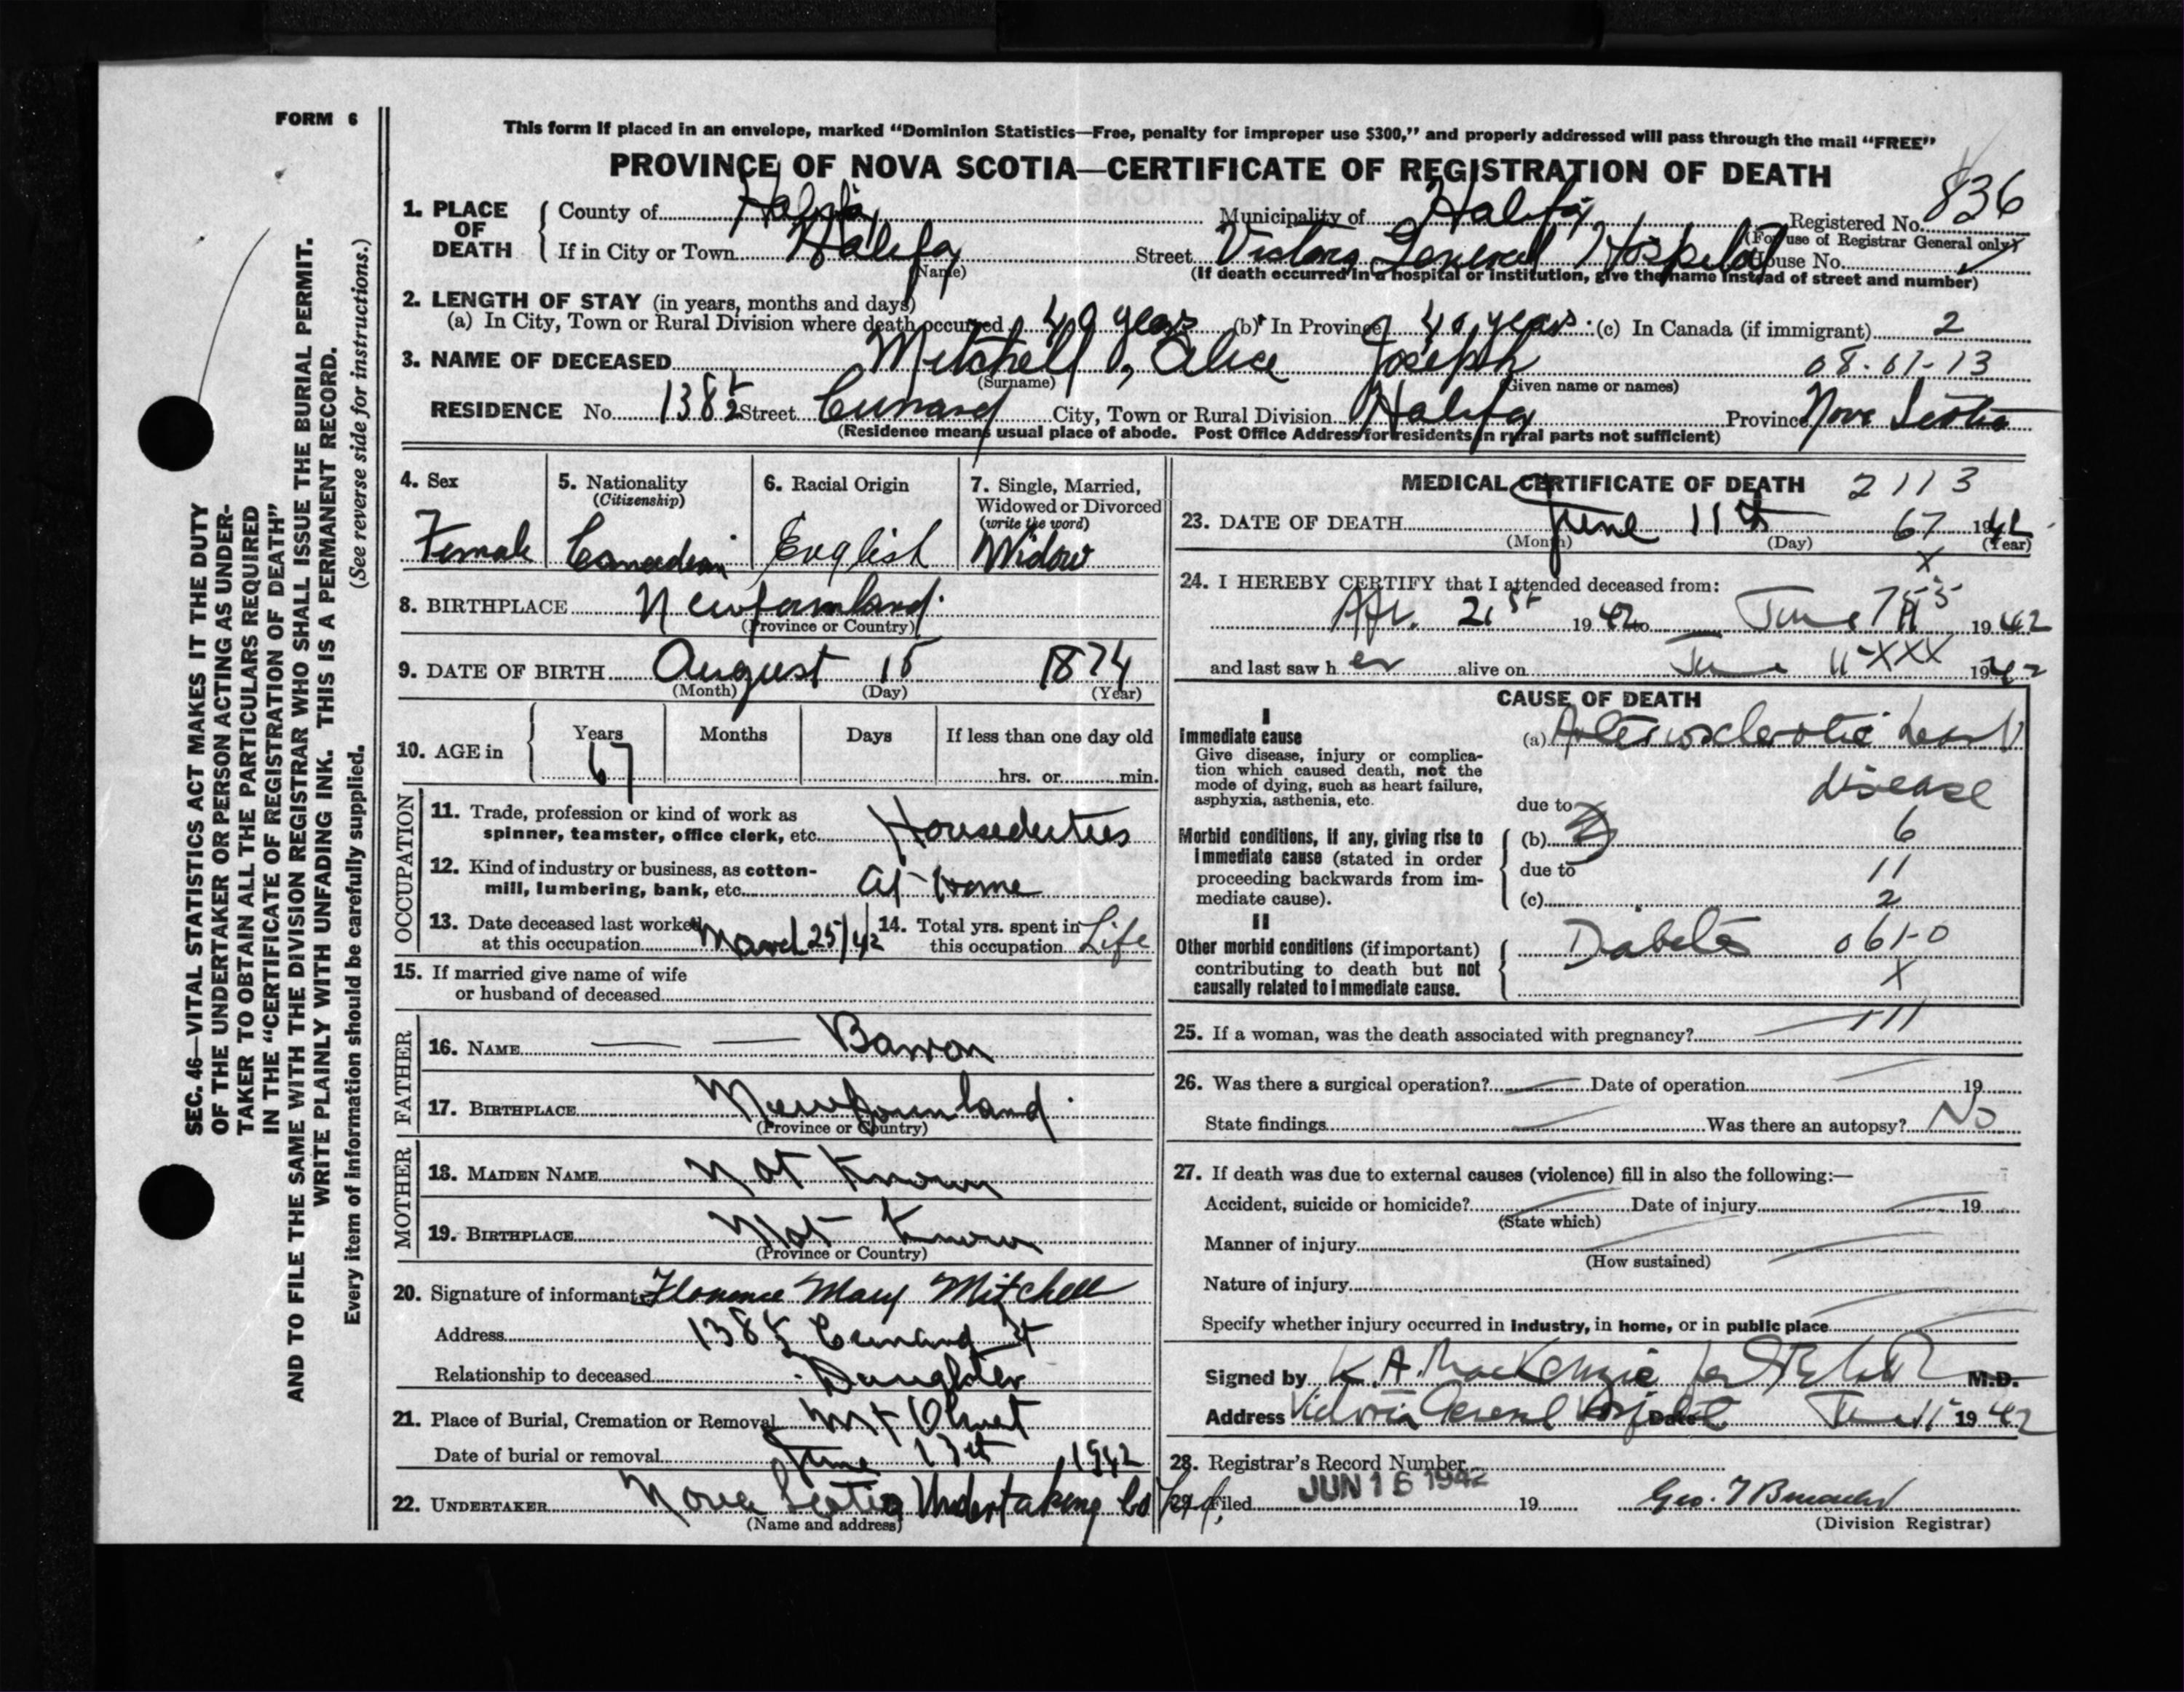 FORM 6
This form if placed in an envelope, marked "Dominion Statistics—Free, penalty for improper use $300," and properly addressed will pass through the mail "FREE"
PROVINCE OF NOVA SCOTIA—CERTIFICATE OF REGISTRATION OF DEATH
836
1. PLACE OF DEATH County of Halifax Municipality of Halifax Registered No.
(For use of Registrar General only)
If in City or Town Halifax Street Victoria General Hospital House No.
(Name) (If death occurred in a hospital or institution, give the name instead of street and number)
2. LENGTH OF STAY (in years, months and days)
(a) In City, Town or Rural Division where death occurred 40 years (b) In Province 40 years (c) In Canada (if immigrant) 2
3. NAME OF DECEASED Mitchell, Alice Joseph 08-01-13
(Surname) (Given name or names)
RESIDENCE No. 138½ Street Cunard City, Town or Rural Division Halifax Province Nova Scotia
(Residence means usual place of abode. Post Office Address for residents in rural parts not sufficient)
4. Sex Female
5. Nationality (Citizenship) Canadian
6. Racial Origin English
7. Single, Married, Widowed or Divorced (write the word) Widow
8. BIRTHPLACE Newfoundland
(Province or Country)
9. DATE OF BIRTH August 15 1874
(Month) (Day) (Year)
10. AGE in Years 67 Months Days If less than one day old
hrs. or min.
OCCUPATION
11. Trade, profession or kind of work as
spinner, teamster, office clerk, etc. Houseduties
12. Kind of industry or business, as cotton-
mill, lumbering, bank, etc. At Home
13. Date deceased last worked at this occupation March 25/42 14. Total yrs. spent in this occupation Life
15. If married give name of wife
or husband of deceased
FATHER
16. NAME — — Barron
17. BIRTHPLACE Newfoundland
(Province or Country)
MOTHER
18. MAIDEN NAME Not Known
19. BIRTHPLACE Not Known
(Province or Country)
20. Signature of informant Florence Mary Mitchell
Address 138½ Cunard St
Relationship to deceased Daughter
21. Place of Burial, Cremation or Removal Mt Olivet
Date of burial or removal June 13th 1942
22. UNDERTAKER Nova Scotia Undertaking Co Ltd.
(Name and address)
MEDICAL CERTIFICATE OF DEATH 2113
23. DATE OF DEATH June 11th 67 1942
(Month) (Day) (Year)
X
24. I HEREBY CERTIFY that I attended deceased from:
Apr. 21st 1942 to June 1942
and last saw her alive on June 11 XXX 1942
CAUSE OF DEATH
I
Immediate cause
Give disease, injury or complica-
tion which caused death, not the
mode of dying, such as heart failure,
asphyxia, asthenia, etc.
(a) Arteriosclerotic heart
disease
due to
Morbid conditions, if any, giving rise to
immediate cause (stated in order
proceeding backwards from im-
mediate cause).
(b) 6
due to 11
(c) 2
II
Other morbid conditions (if important)
contributing to death but not
causally related to immediate cause.
Diabetes 061-0
X
25. If a woman, was the death associated with pregnancy? — 111
26. Was there a surgical operation? — Date of operation — 19
State findings — Was there an autopsy? No
27. If death was due to external causes (violence) fill in also the following:—
Accident, suicide or homicide? — Date of injury — 19
(State which)
Manner of injury
(How sustained)
Nature of injury
Specify whether injury occurred in industry, in home, or in public place
Signed by K. A. MacKenzie M.D.
Address Victoria General Hospital Date June 11 1942
28. Registrar's Record Number
29. Filed JUN 16 1942 19
(Division Registrar)
SEC. 46—VITAL STATISTICS ACT MAKES IT THE DUTY
OF THE UNDERTAKER OR PERSON ACTING AS UNDER-
TAKER TO OBTAIN ALL THE PARTICULARS REQUIRED
IN THE "CERTIFICATE OF REGISTRATION OF DEATH"
AND TO FILE THE SAME WITH THE DIVISION REGISTRAR WHO SHALL ISSUE THE BURIAL PERMIT.
WRITE PLAINLY WITH UNFADING INK. THIS IS A PERMANENT RECORD.
Every item of information should be carefully supplied. (See reverse side for instructions.)